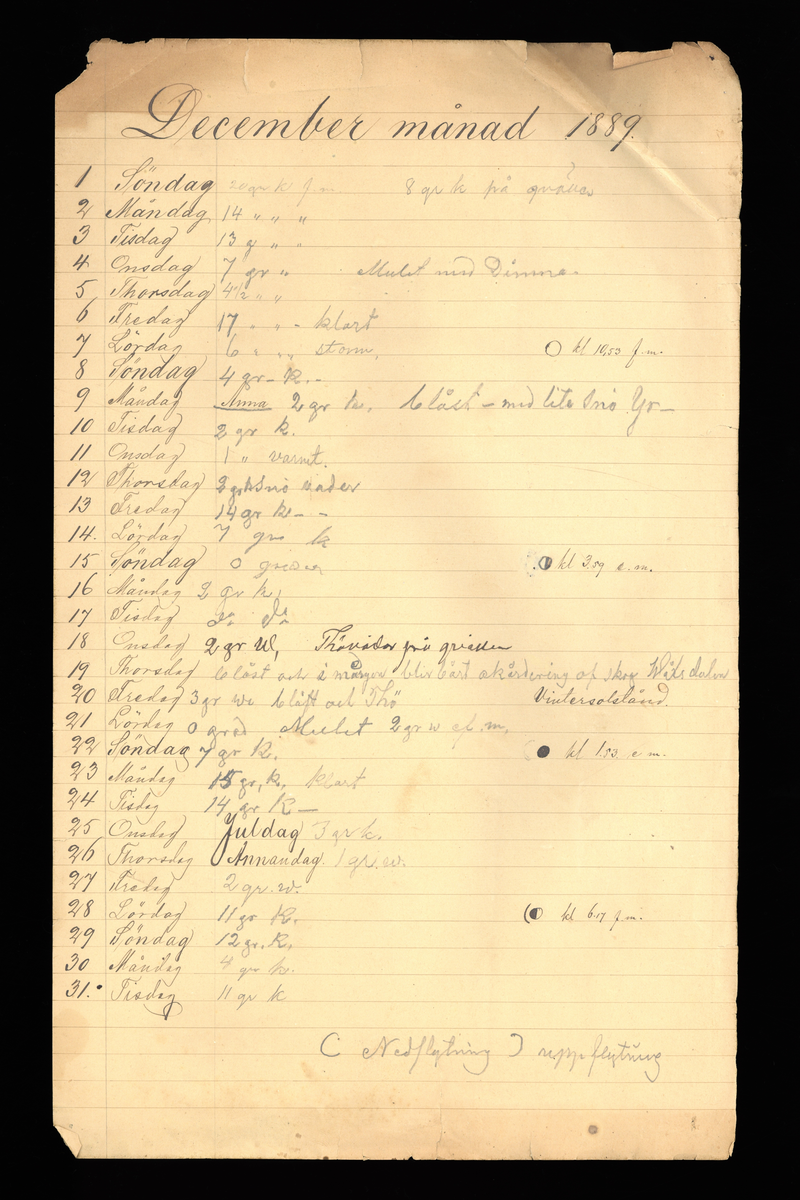 December månad 1889.
1 Söndag 20 gr k f.m. 8 gr k på
2 Måndag 14 " " "
3 Tisdag 13 g " "
4 Onsdag 7 gr " Mulet med Dimma.
5 Thorsdag 4 1/2 " "
6 Fredag 17 " " - klart
7 Lördag 6 " " storm, kl 10,53 f.m.
8 Söndag 4 gr - k. -
9 Måndag Anna 2 gr k. blåst - med lite snö Yr -
10 Tisdag 2 gr k.
11 Onsdag 1 " varmt.
12 Thorsdag 3 gr k snö väder
13 Fredag 14 gr k - -
14. Lördag 7 gr k
15 Söndag 0 grader kl 3.59 e.m.
16 Måndag 2 gr k,
17 Tisdag då då
18 Onsdag 2 gr W, Thöväder
19 Thorsdag blåst och i morgon blir af skog
20 Fredag 3 gr w blåst och Thö Vintersolstånd.
21 Lördag 0 grad Mulet 2 gr w ef. m,
22 Söndag 7 gr k. kl 1.53. e m.
23 Måndag 15 gr, k, klart
24 Tisdag 14 gr K —
25 Onsdag Juldag 3 gr k.
26 Thorsdag Annandag. 1 gr. w.
27 Fredag 2 gr. w.
28 Lördag 11 gr K. kl 6.17 f.m.
29 Söndag 12 gr. K,
30 Måndag 4 gr k.
31. Tisdag 11 gr k
( Nedflytning ) uppflytning